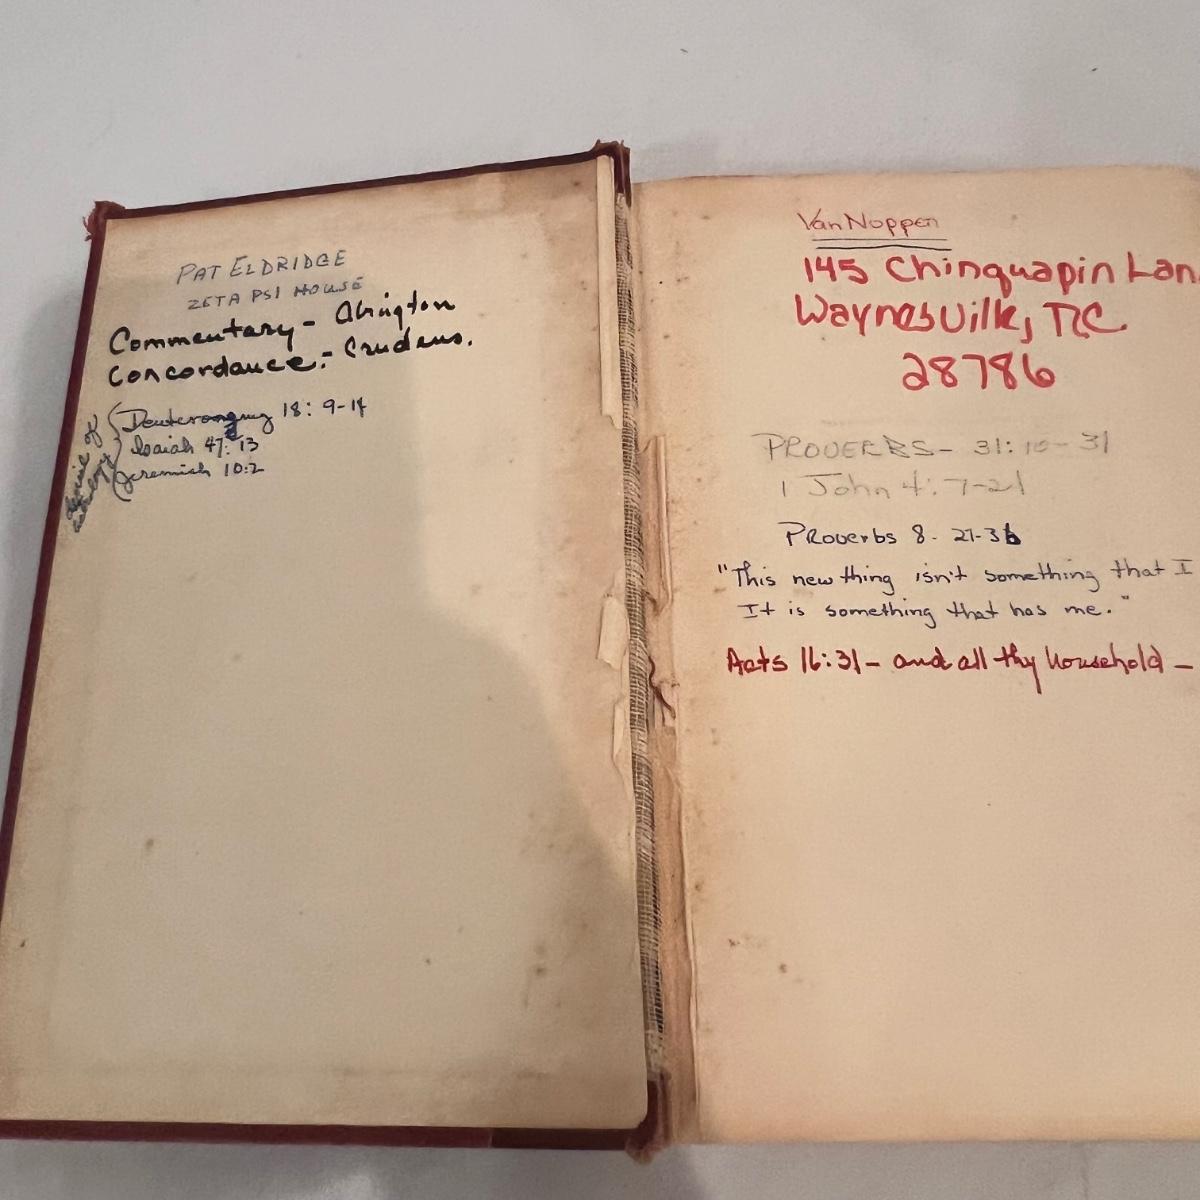 PAT ELDRIDGE
ZETA PSI HOUSE
Commentary - Abington
Concordance - Crudens.
denial of
astrology
Deuteronomy 18: 9-14
Isaiah 47: 13
Jeremiah 10:2
Van Noppen
145 Chinquapin Lan
Waynesville, NC
28786
PROVERBS - 31: 10 - 31
1 John 4: 7-21
Proverbs 8 - 27-36
"This new thing isn't something that I
It is something that has me."
Acts 16:31 - and all thy household -